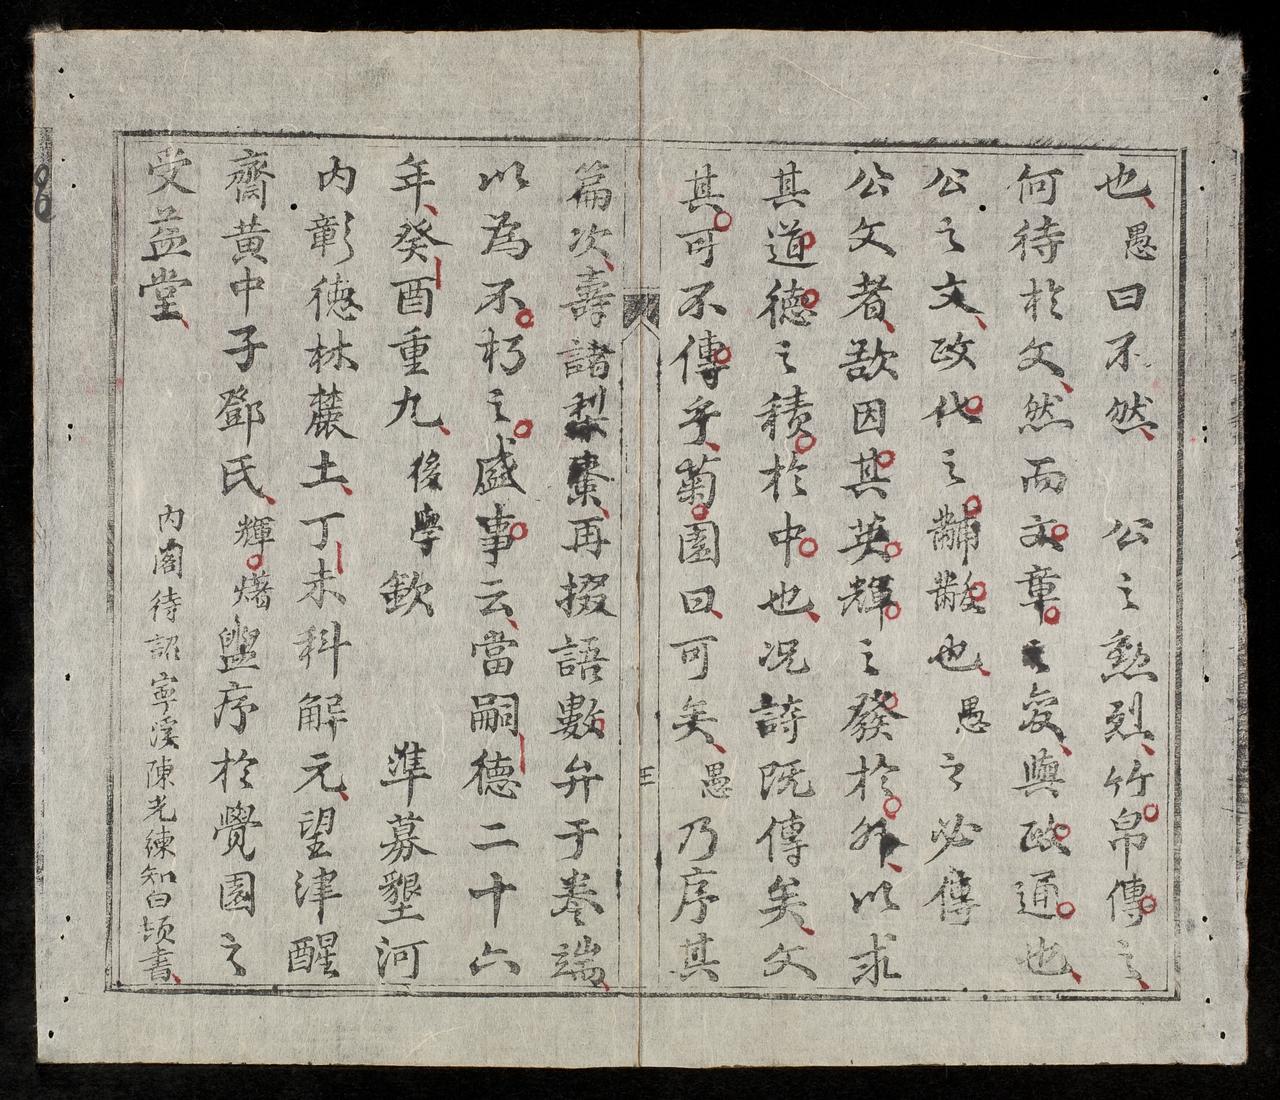 也愚曰不然　公之勲烈竹帛傳之
何待於文然而文章之爰與政通也
公之文政代之黼黻也愚之必傳
公文者欲因其英輝之發於外以求
其道德之積於中也况詩既傳矣文
其可不傳乎菊園曰可矣愚乃序其
篇次壽諸梨棗再掇語數弁于卷端
以為不朽之盛事云當嗣德二十六
年癸酉重九後學欽　準募墾河
內彰德林麓土丁未科解元望津醒
齋黃中子鄧氏輝𤏸盥序於覺園之
受益堂
內閣待詔寧溪陳光練知白頓書